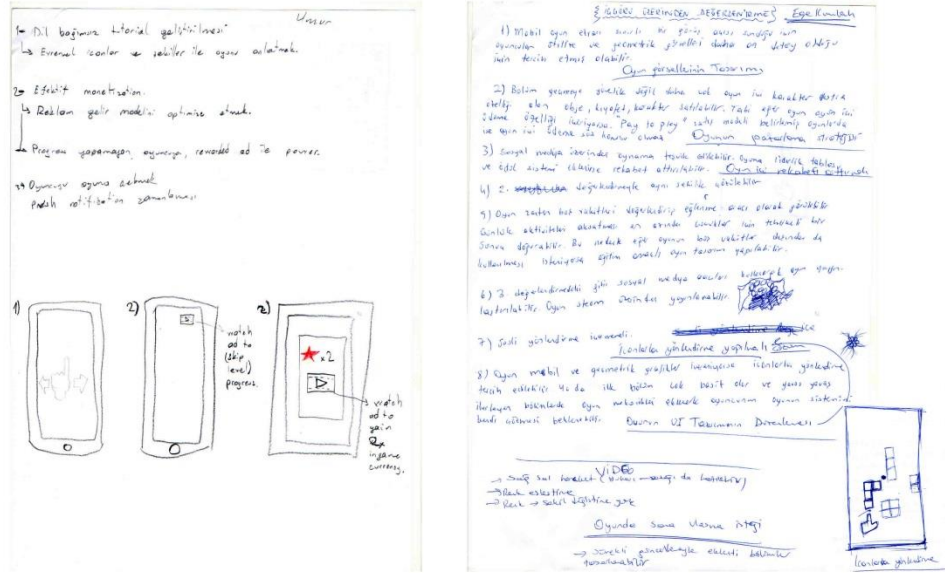 Umur
1- Dil bağımsız tutorial geliştirilmesi
↳ Evrensel iconlar ve şekiller ile oyunu anlatmak.
2- Efektif monetization.
↳ Reklam gelir modelini optimize etmek.
↳ Progress yapamayan oyuncuya, rewarded ad ile power.
Oyuncuyu oyuna
push notification zamanlaması
1)
2)
watch
ad to
(skip
level)
progress.
2)
x2
watch
ad to
gain
ingame
currency.
{ İÇGÖRÜ ÜZERİNDEN DEĞERLENDİRME } Ege Kumlah
1) Mobil oyun ekranı sınırlı bir görüş açısı sunduğu için
oyuncular stilize ve geometrik görselleri daha ön
için tercih etmiş olabilir.
Oyun görsellerinin Tasarımı
2) Bölüm geçmeye yönelik değil daha çok oyun içi karakter
özelliği olan obje, kıyafet, karakter satılabilir. Tabi eğer oyun oyun içi
ödeme özelliği içeriyorsa. "Pay to play" satış modeli belirlemiş oyunlarda
ve oyun içi ödeme söz konusu olmaz. Oyunun pazarlama stratejisi
3) Sosyal medya üzerinden oynama teşvik edilebilir. Oyuna liderlik tablosu
ve ödül sistemi eklenirse rekabet arttırılabilir. Oyun içi rekabeti arttırmak
4) 2. değerlendirmeyle aynı şekilde görülebilir
5) Oyun zaten boş vakitleri değerlendirip eğlenme aracı olarak görülebilir
Günlük aktiviteleri aksatması en azından çocuklar için tehlikeli bir
sonuç doğurabilir. Bu nedenle eğer oyunun boş vakitler dışında da
kullanılması isteniyorsa eğitim oyun tasarımı yapılabilir.
6) 3 değerlendirmedeki gibi sosyal medya araçları kullanarak oyun
Oyun steam üzerinden yayınlanabilir.
7) Sesli yönlendirme
İconlarla yönlendirme yapılmalı
8) Oyun mobil ve geometrik grafikler iconlarla yönlendirme
tercih edilebilir ya da ilk bölüm çok basit olur ve yavaş yavaş
ilerleyen bölümlerde oyun mekanikleri eklenerek oyuncunun oyunun sistemini
kendi çözmesi beklenebilir. Oyunun UI Tasarımının Düzenlenmesi
VİDEO
→ Sağ sol hareket
→ Renk eşleştirme
→ Renk → şekil değiştirme
Oyunda sona ulaşma isteği
→ Sürekli güncellemeyle eklenti bölümler
tasarlanabilir
İconlarla yönlendirme